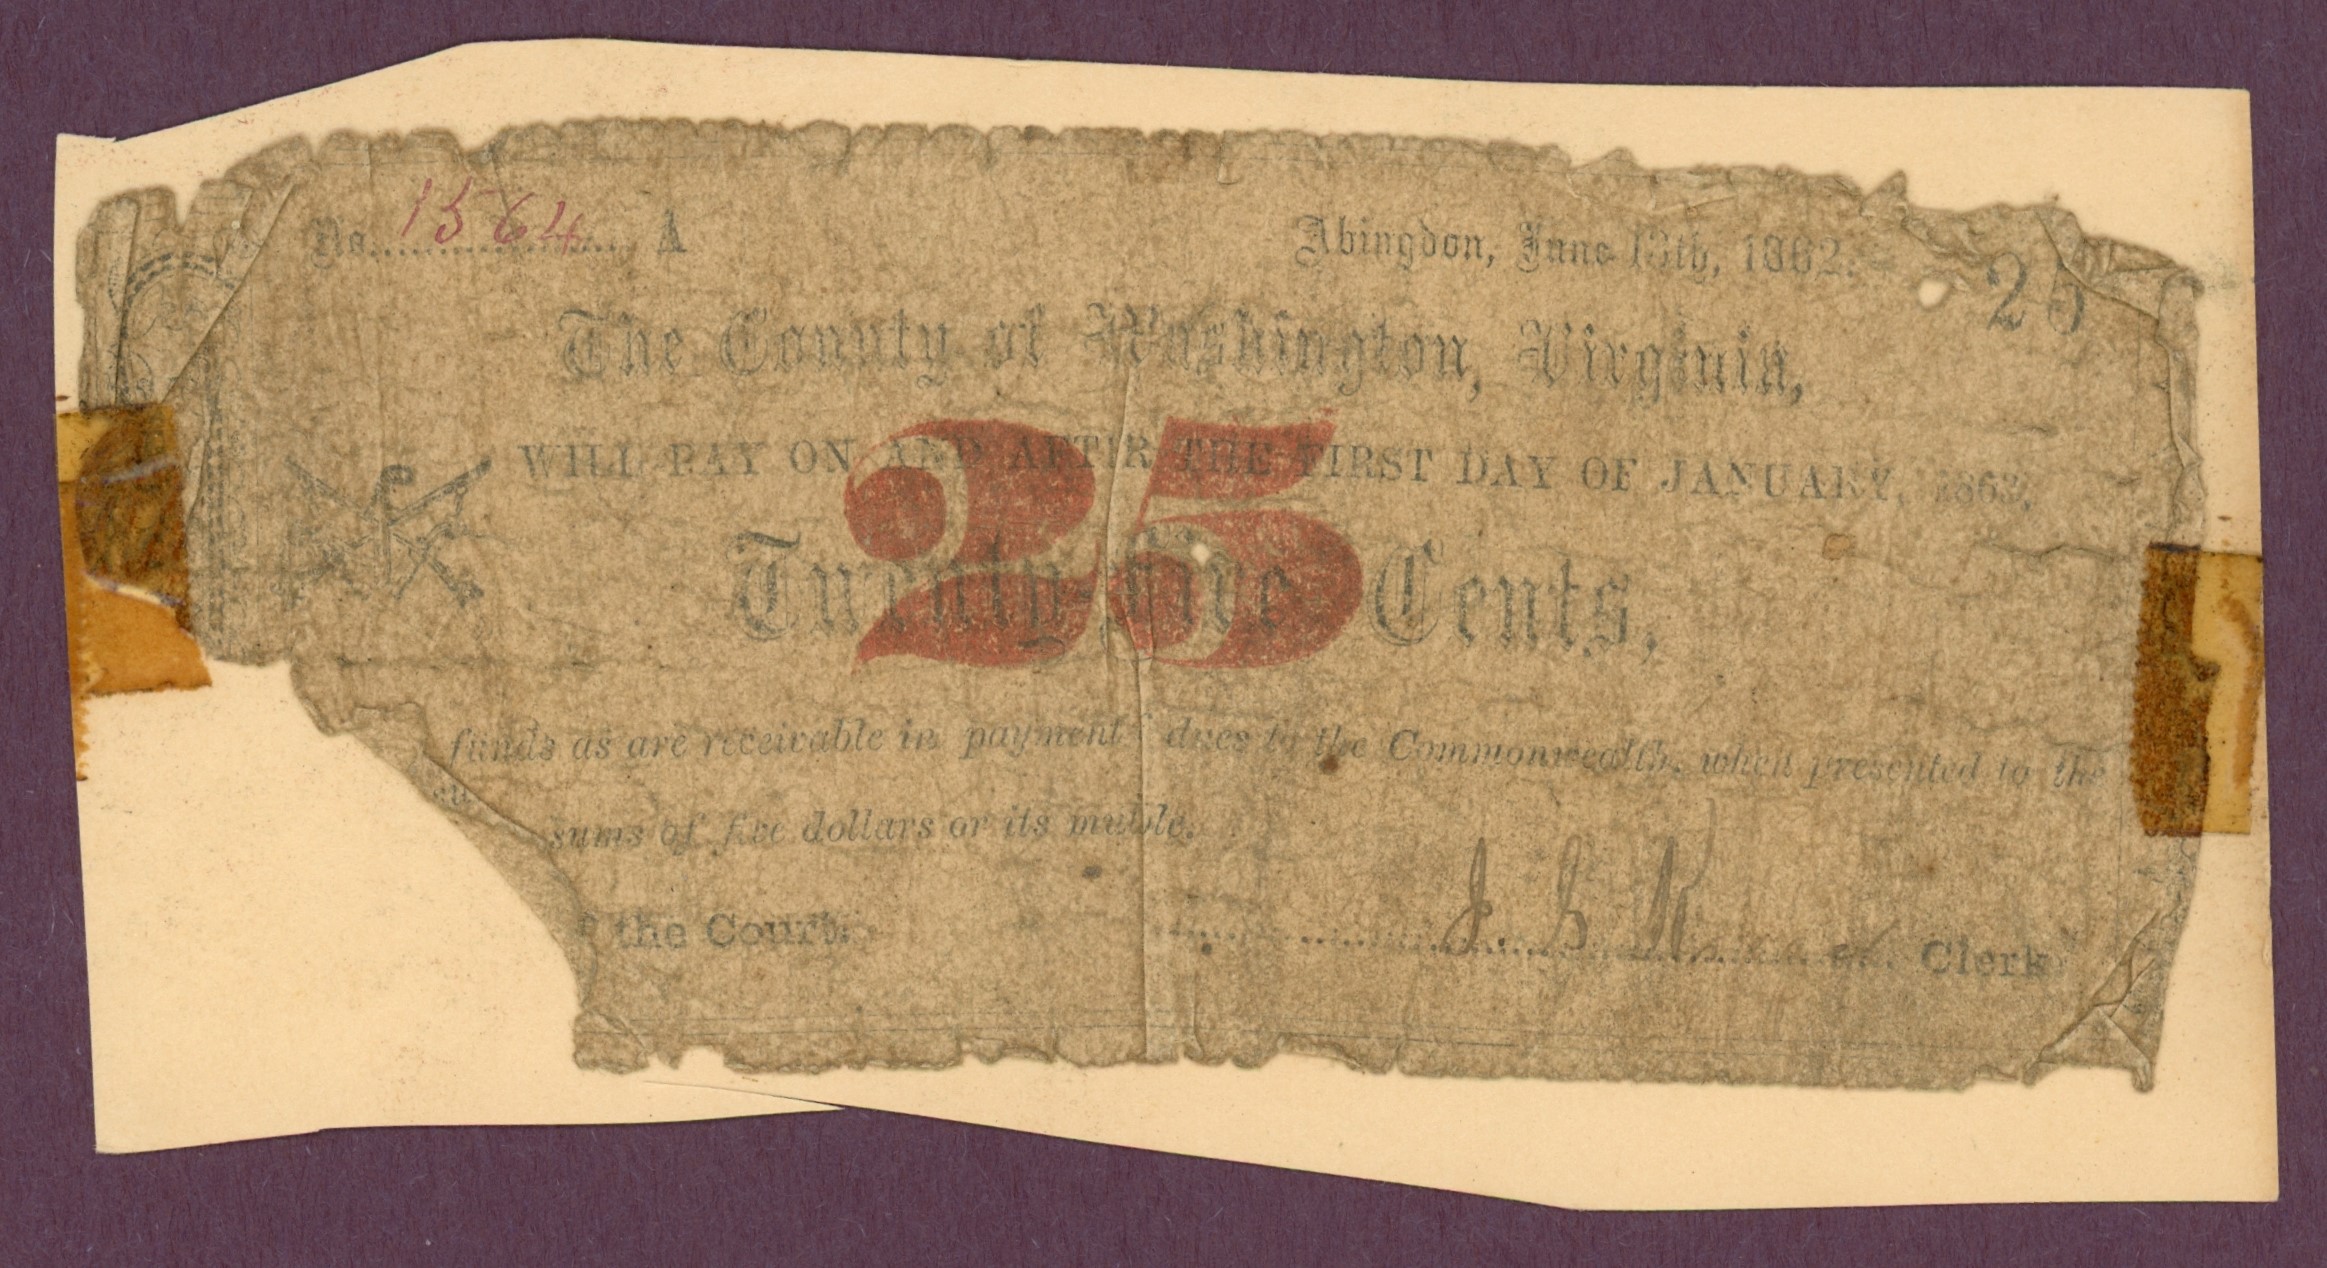 No. 1564 A
Abingdon, June 13th, 1862.
25
The County of Washington, Virginia,
WILL PAY ON AND AFTER THE FIRST DAY OF JANUARY, 1863,
25
Twenty-five Cents,
funds as are receivable in payment dues to the Commonwealth, when presented to the
sums of five dollars or its
the Court.
J. G. K Clerk